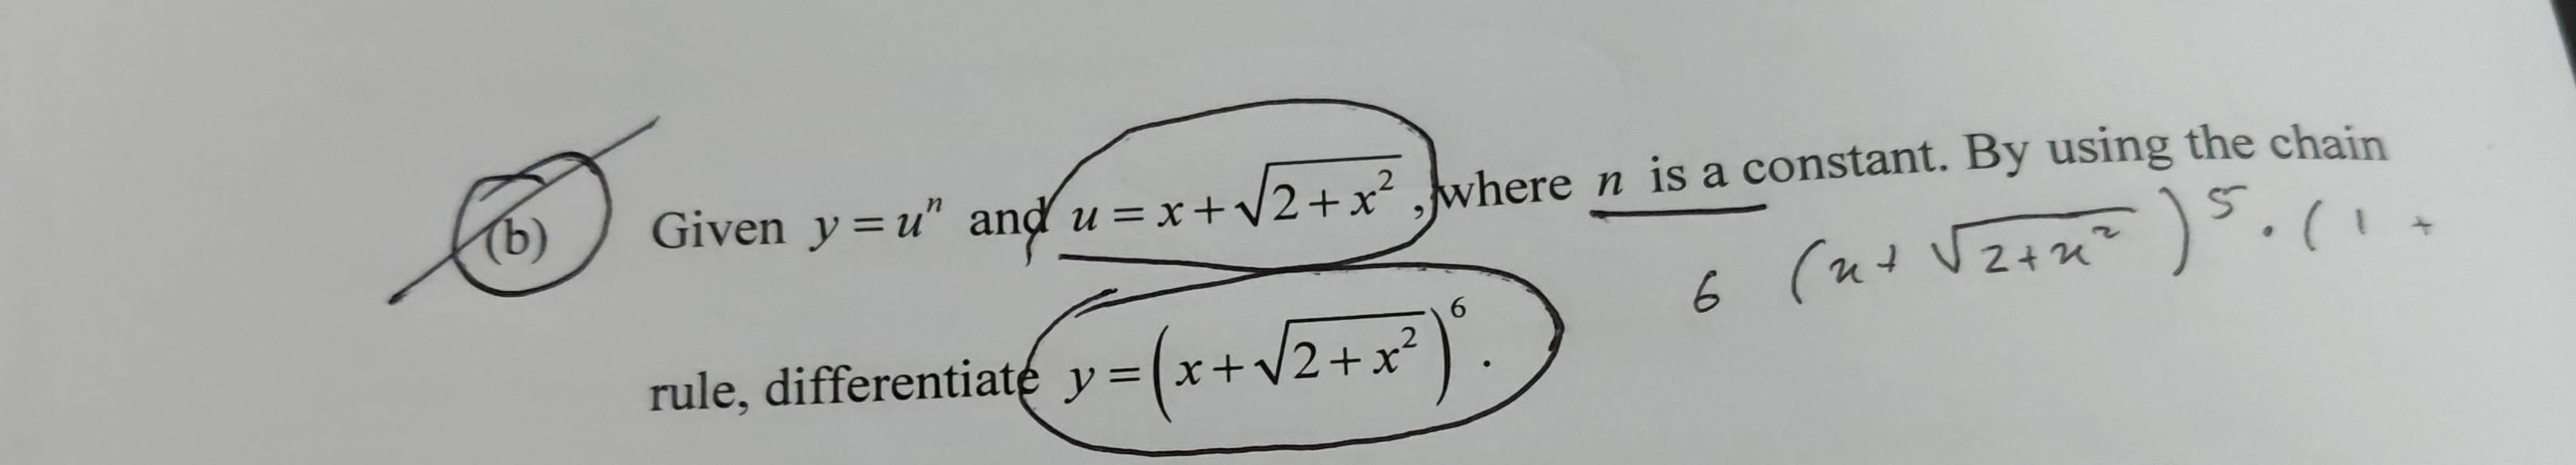 (b) Given y = uⁿ and u = x + √(2 + x²), where n is a constant. By using the chain
6 (x + √(2 + x²))⁵ · (1 +
rule, differentiate y = (x + √(2 + x²))⁶.